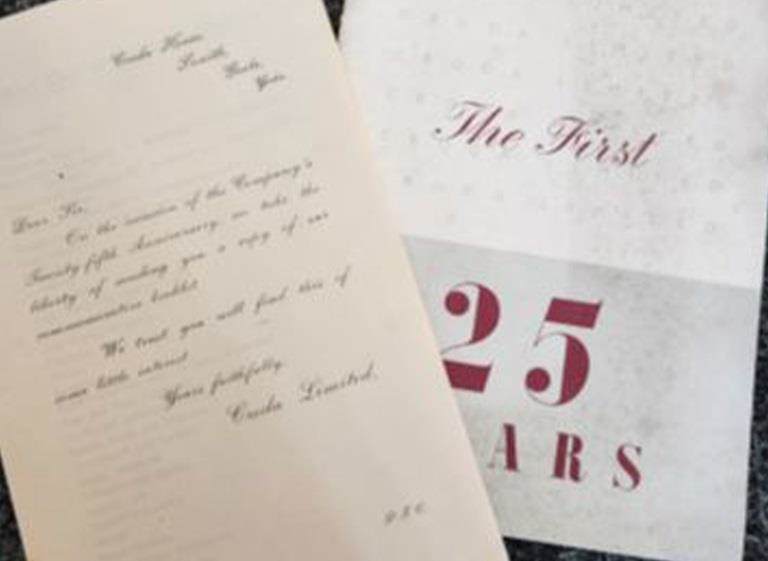 Croda House,
Snaith,
Goole,
Yorks.
Dear Sir,
On the occasion of the Company's
Twenty-fifth Anniversary, we take the
liberty of sending you a copy of our
commemorative booklet.
We trust you will find this of
some little interest.
Yours faithfully,
Croda Limited.
The First
25
ARS